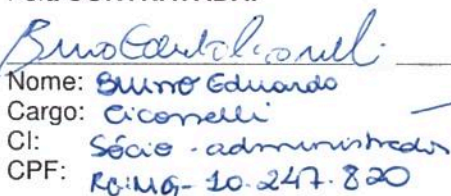 Pela CONTRATADA:
Bruno Eduardo Ciconelli
Nome: Bruno Eduardo
Cargo: Ciconelli
CI: Sócio-administrador
CPF: RG:MG-10.247.820